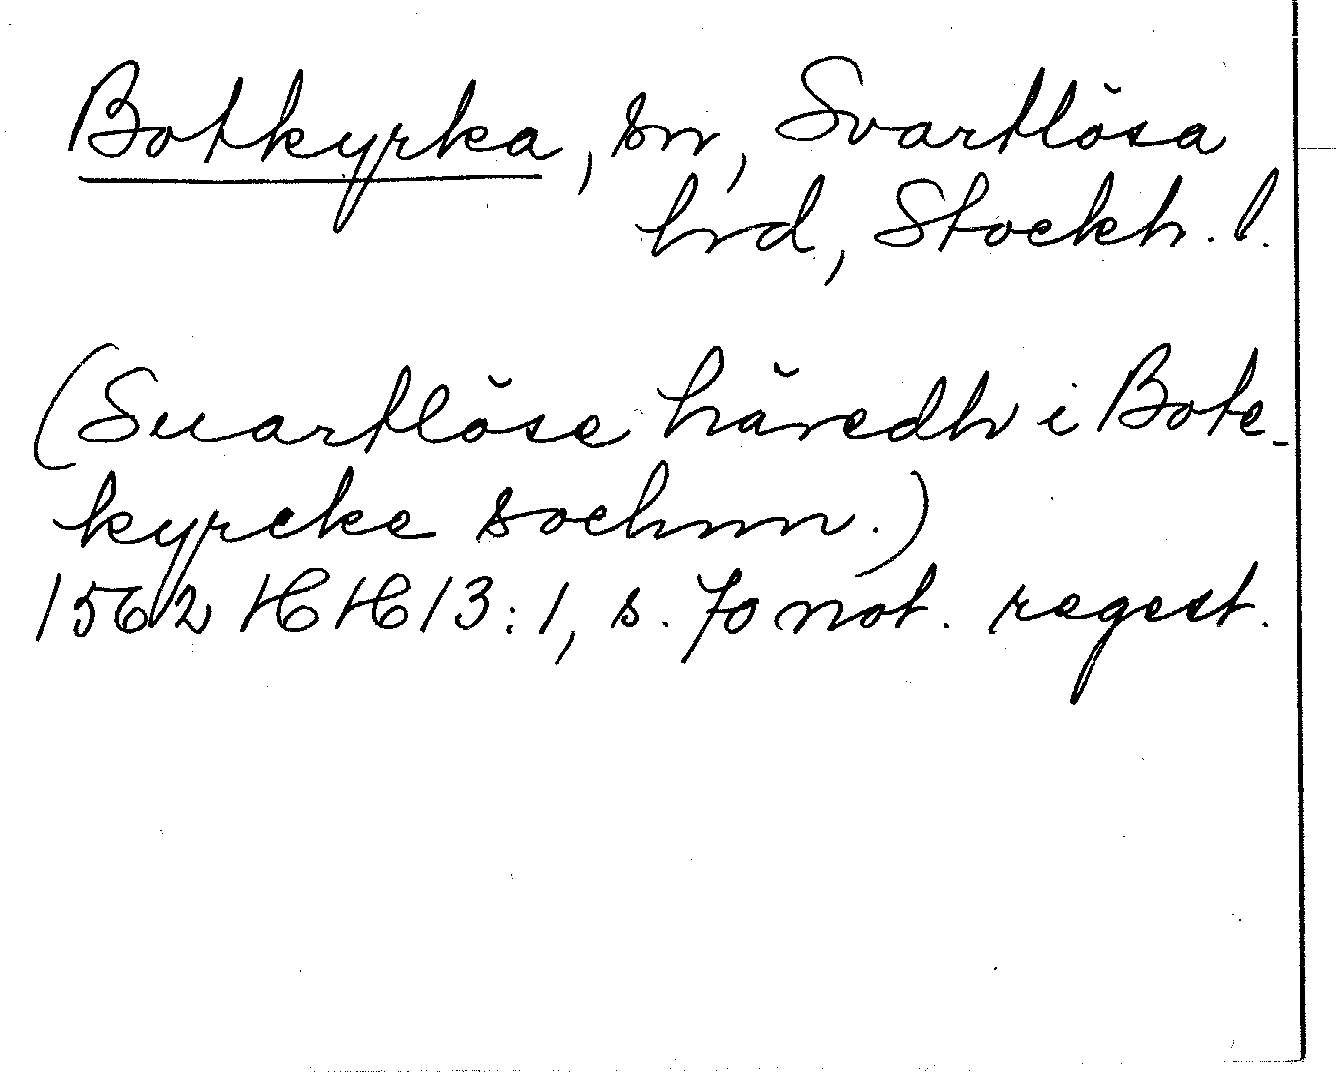 Botkyrka, sn, Svartlösa
hrd, Stockh. l.
(Suartlöse häredh i Bote-
kyrcke sochnn.)
1562 HH 13:1, s. 70 not. regest.